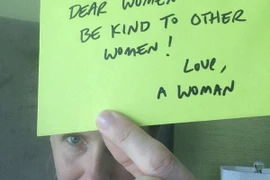 DEAR WOMEN
BE KIND TO OTHER
WOMEN!
LOVE,
A WOMAN